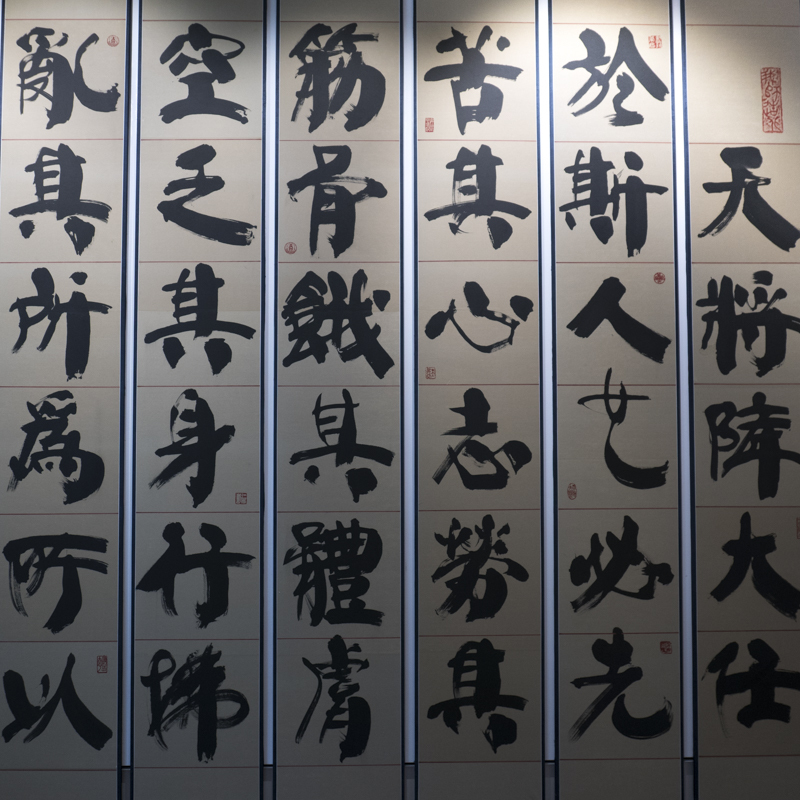 天將降大任
於斯人也必先
苦其心志勞其
筋骨餓其體膚
空乏其身行拂
亂其所為所以